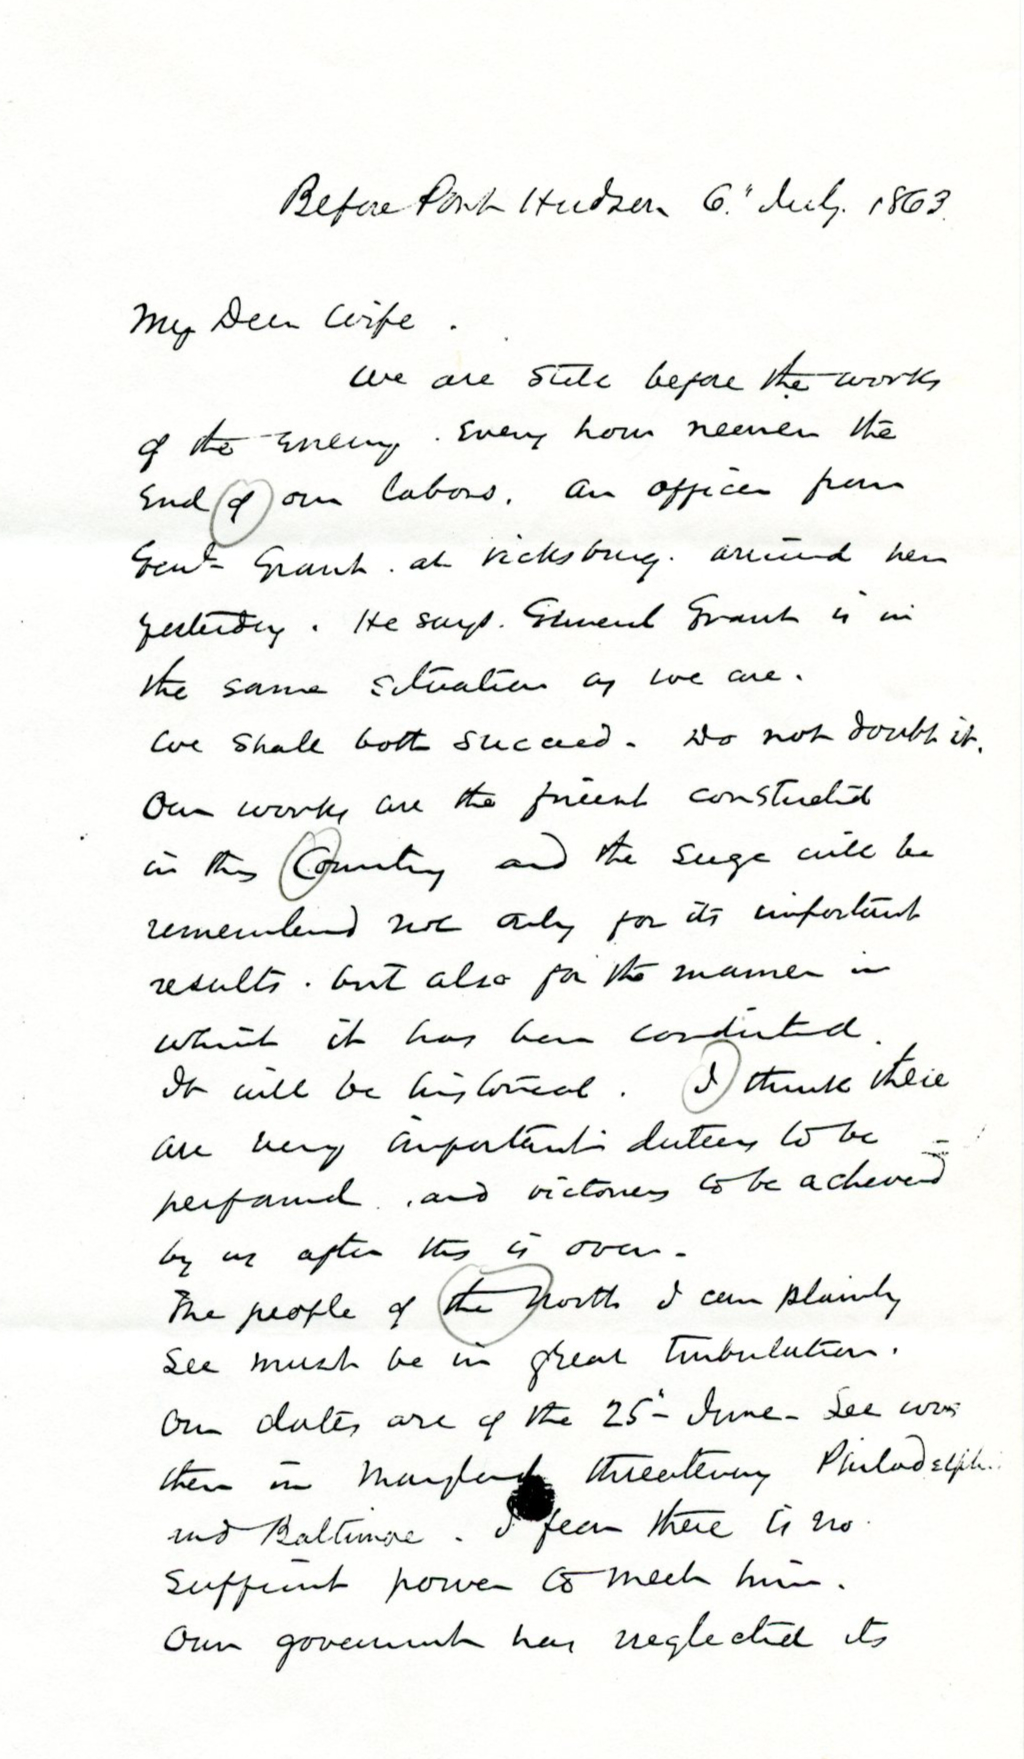 Before Port Hudson 6" July. 1863.
My Dear Wife.
We are still before the works
of the Enemy. Every hour nearer the
End of our labors. An officer from
Genl Grant. at Vicksburg. arrived here
yesterday. He says. General Grant is in
the same situation as we are.
We shall both succeed. Do not doubt it.
Our works are the finest constructed
in this Country and the siege will be
remembered not only for its important
results. but also for the manner in
which it has been conducted.
It will be historical. I think there
are very important duties to be
performed. and victories to be achieved
by us after this is over.
The people of the North I can plainly
see must be in great tribulation.
Our dates are of the 25" June. Lee was
then in Maryland threatening Philadelphia
and Baltimore. I fear there is no
sufficient power to meet him.
Our government has neglected its